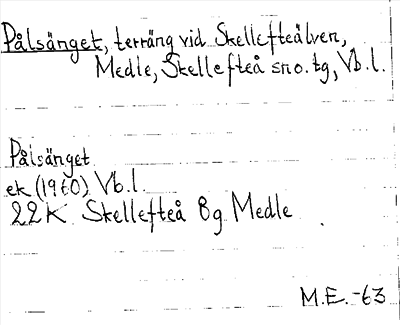 Pålsänget, terräng vid Skellefteälven,
Medle, Skellefteå sno. tg, Vb.l.
Pålsänget
ek (1960) Vb.l.
22K Skellefteå 8g Medle
M.E. -63